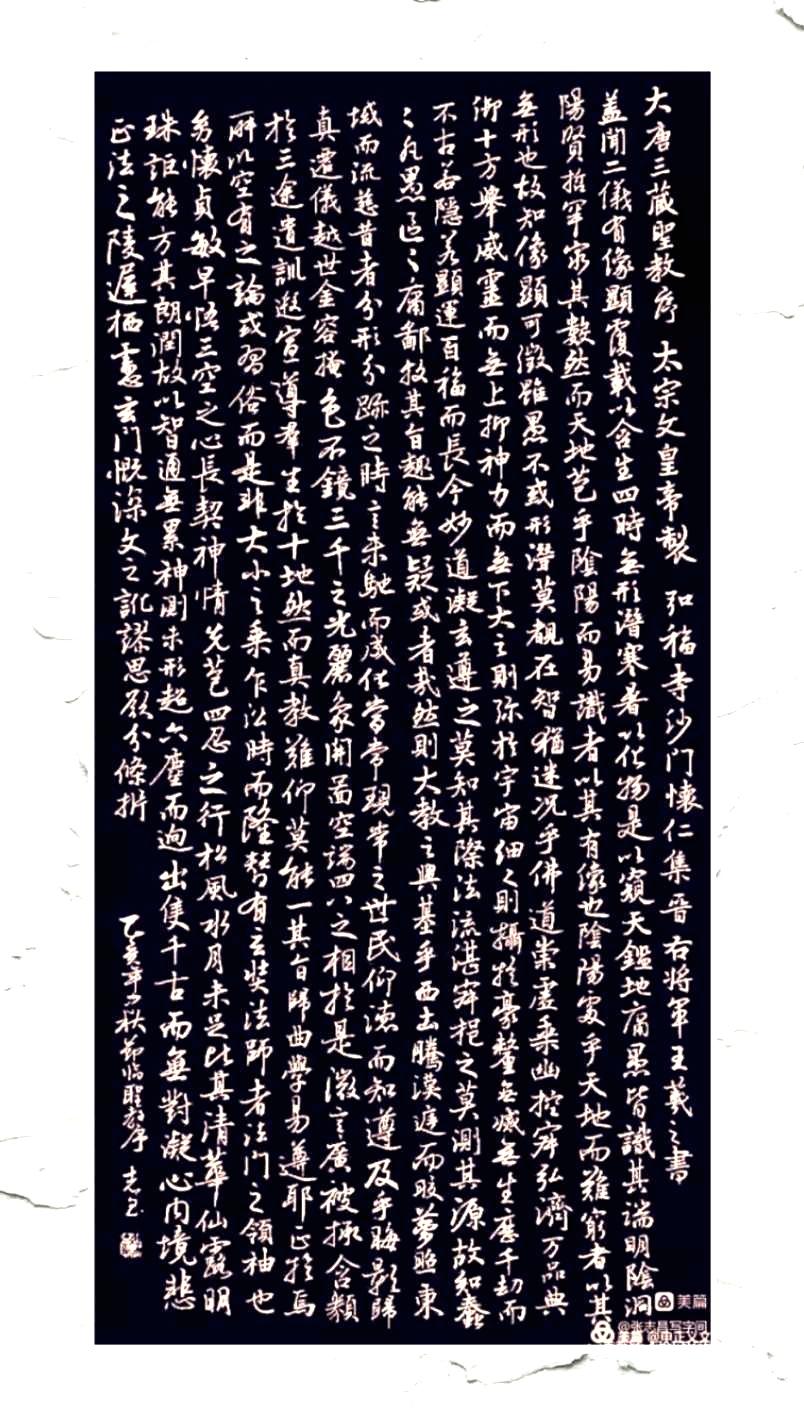 大唐三藏聖教序 太宗文皇帝製 弘福寺沙門懷仁集晉右將軍王羲之書
蓋聞二儀有像顯覆載以含生四時無形潛寒暑以化物是以窺天鑑地庸愚皆識其端明陰洞
陽賢哲罕窮其數然而天地苞乎陰陽而易識者以其有像也陰陽處乎天地而難窮者以其
無形也故知像顯可徵雖愚不惑形潛莫覩在智猶迷况乎佛道崇虛乘幽控寂弘濟万品典
御十方舉威靈而無上抑神力而無下大之則弥於宇宙細之則攝於豪釐無滅無生歷千劫而
不古若隱若顯運百福而長今妙道凝玄遵之莫知其際法流湛寂挹之莫測其源故知蠢
々凡愚區々庸鄙投其旨趣能無疑或者哉然則大教之興基乎西土騰漢庭而皎夢照東
域而流慈昔者分形分跡之時言未馳而成化當常現常之世民仰德而知遵及乎晦影歸
真遷儀越世金容掩色不鏡三千之光麗象開圖空端四八之相於是微言廣被拯含類
於三途遺訓遐宣導羣生於十地然而真教難仰莫能一其旨歸曲學易遵耶正於焉
所以空有之論或習俗而是非大小之乘乍沿時而隆替有玄奘法師者法門之領袖也
幼懷貞敏早悟三空之心長契神情先苞四忍之行松風水月未足比其清華仙露明
珠詎能方其朗潤故以智通無累神測未形超六塵而迥出隻千古而無對凝心內境悲
正法之陵遲栖慮玄門慨深文之訛謬思欲分條析
乙亥年 秋節臨聖教序
美篇
@张志昌写字间
美篇